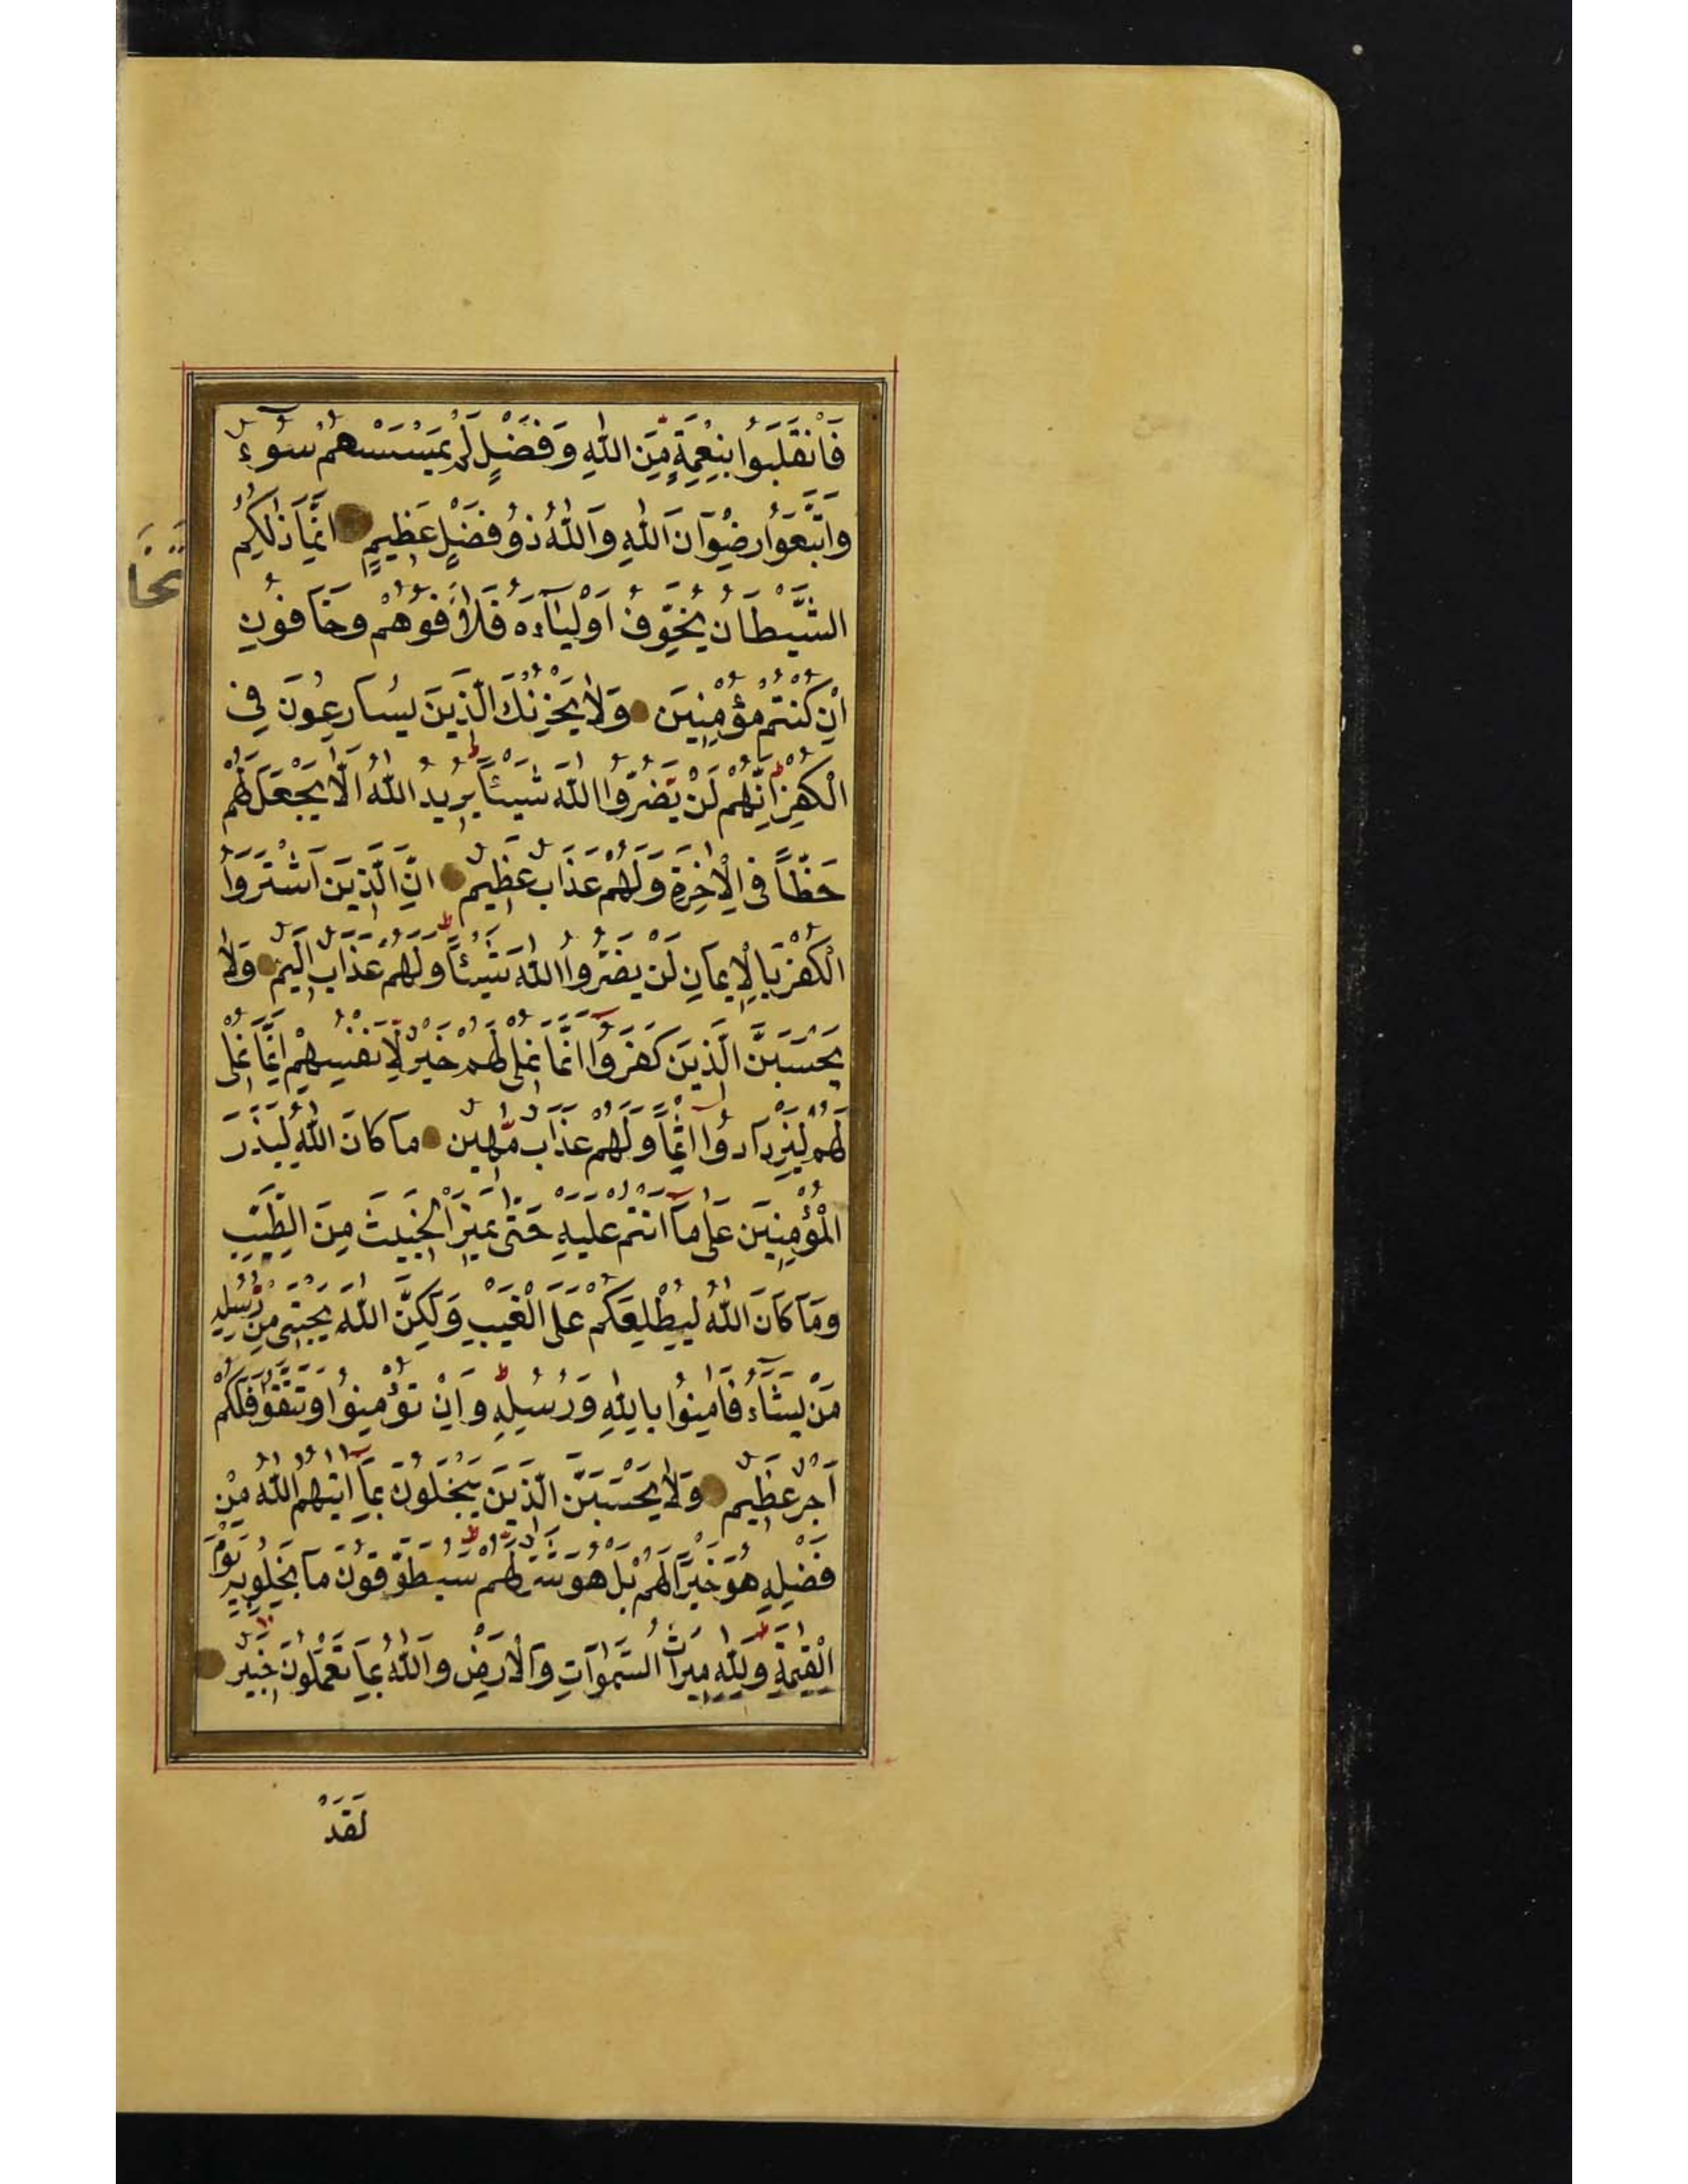 فَانْقَلَبُوا بِنِعْمَةٍ مِّنَ اللّٰهِ وَفَضْلٍ لَّمْ يَمْسَسْهُمْ سُوءٌ
وَاتَّبَعُوا رِضْوَانَ اللّٰهِ وَاللّٰهُ ذُو فَضْلٍ عَظِيمٍ اِنَّمَا ذٰلِكُمُ
الشَّيْطَانُ يُخَوِّفُ اَوْلِيَآءَهُ فَلَا فُوهُمْ وَخَافُونِ
اِنْ كُنْتُمْ مُؤْمِنِينَ وَلَا يَحْزُنْكَ الَّذِينَ يُسَارِعُونَ فِي
الْكُفْرِ اِنَّهُمْ لَنْ يَضُرُّوا اللّٰهَ شَيْئًا يُرِيدُ اللّٰهُ اَلَّا يَجْعَلَ لَهُمْ
حَظًّا فِي الْاٰخِرَةِ وَلَهُمْ عَذَابٌ عَظِيمٌ اِنَّ الَّذِينَ اشْتَرَوُا
الْكُفْرَ بِالْاِيمَانِ لَنْ يَضُرُّوا اللّٰهَ شَيْئًا وَلَهُمْ عَذَابٌ اَلِيمٌ وَلَا
يَحْسَبَنَّ الَّذِينَ كَفَرُوا اَنَّمَا نُمْلِي لَهُمْ خَيْرٌ لِّاَنْفُسِهِمْ اِنَّمَا نُمْلِي
لَهُمْ لِيَزْدَادُوا اِثْمًا وَلَهُمْ عَذَابٌ مُّهِينٌ مَا كَانَ اللّٰهُ لِيَذَرَ
الْمُؤْمِنِينَ عَلٰى مَآ اَنْتُمْ عَلَيْهِ حَتّٰى يَمِيزَ الْخَبِيثَ مِنَ الطَّيِّبِ
وَمَا كَانَ اللّٰهُ لِيُطْلِعَكُمْ عَلَى الْغَيْبِ وَلٰكِنَّ اللّٰهَ يَجْتَبِي مِنْ رُّسُلِهِ
مَنْ يَشَآءُ فَاٰمِنُوا بِاللّٰهِ وَرُسُلِهِ وَاِنْ تُؤْمِنُوا وَتَتَّقُوا فَلَكُمْ
اَجْرٌ عَظِيمٌ وَلَا يَحْسَبَنَّ الَّذِينَ يَبْخَلُونَ بِمَآ اٰتٰيهُمُ اللّٰهُ مِنْ
فَضْلِهِ هُوَ خَيْرًا لَهُمْ بَلْ هُوَ شَرٌّ لَهُمْ سَيُطَوَّقُونَ مَا بَخِلُوا بِهِ يَوْمَ
الْقِيٰمَةِ وَلِلّٰهِ مِيرَاثُ السَّمٰوَاتِ وَالْاَرْضِ وَاللّٰهُ بِمَا تَعْمَلُونَ خَبِيرٌ
تَخَا
لَقَدْ